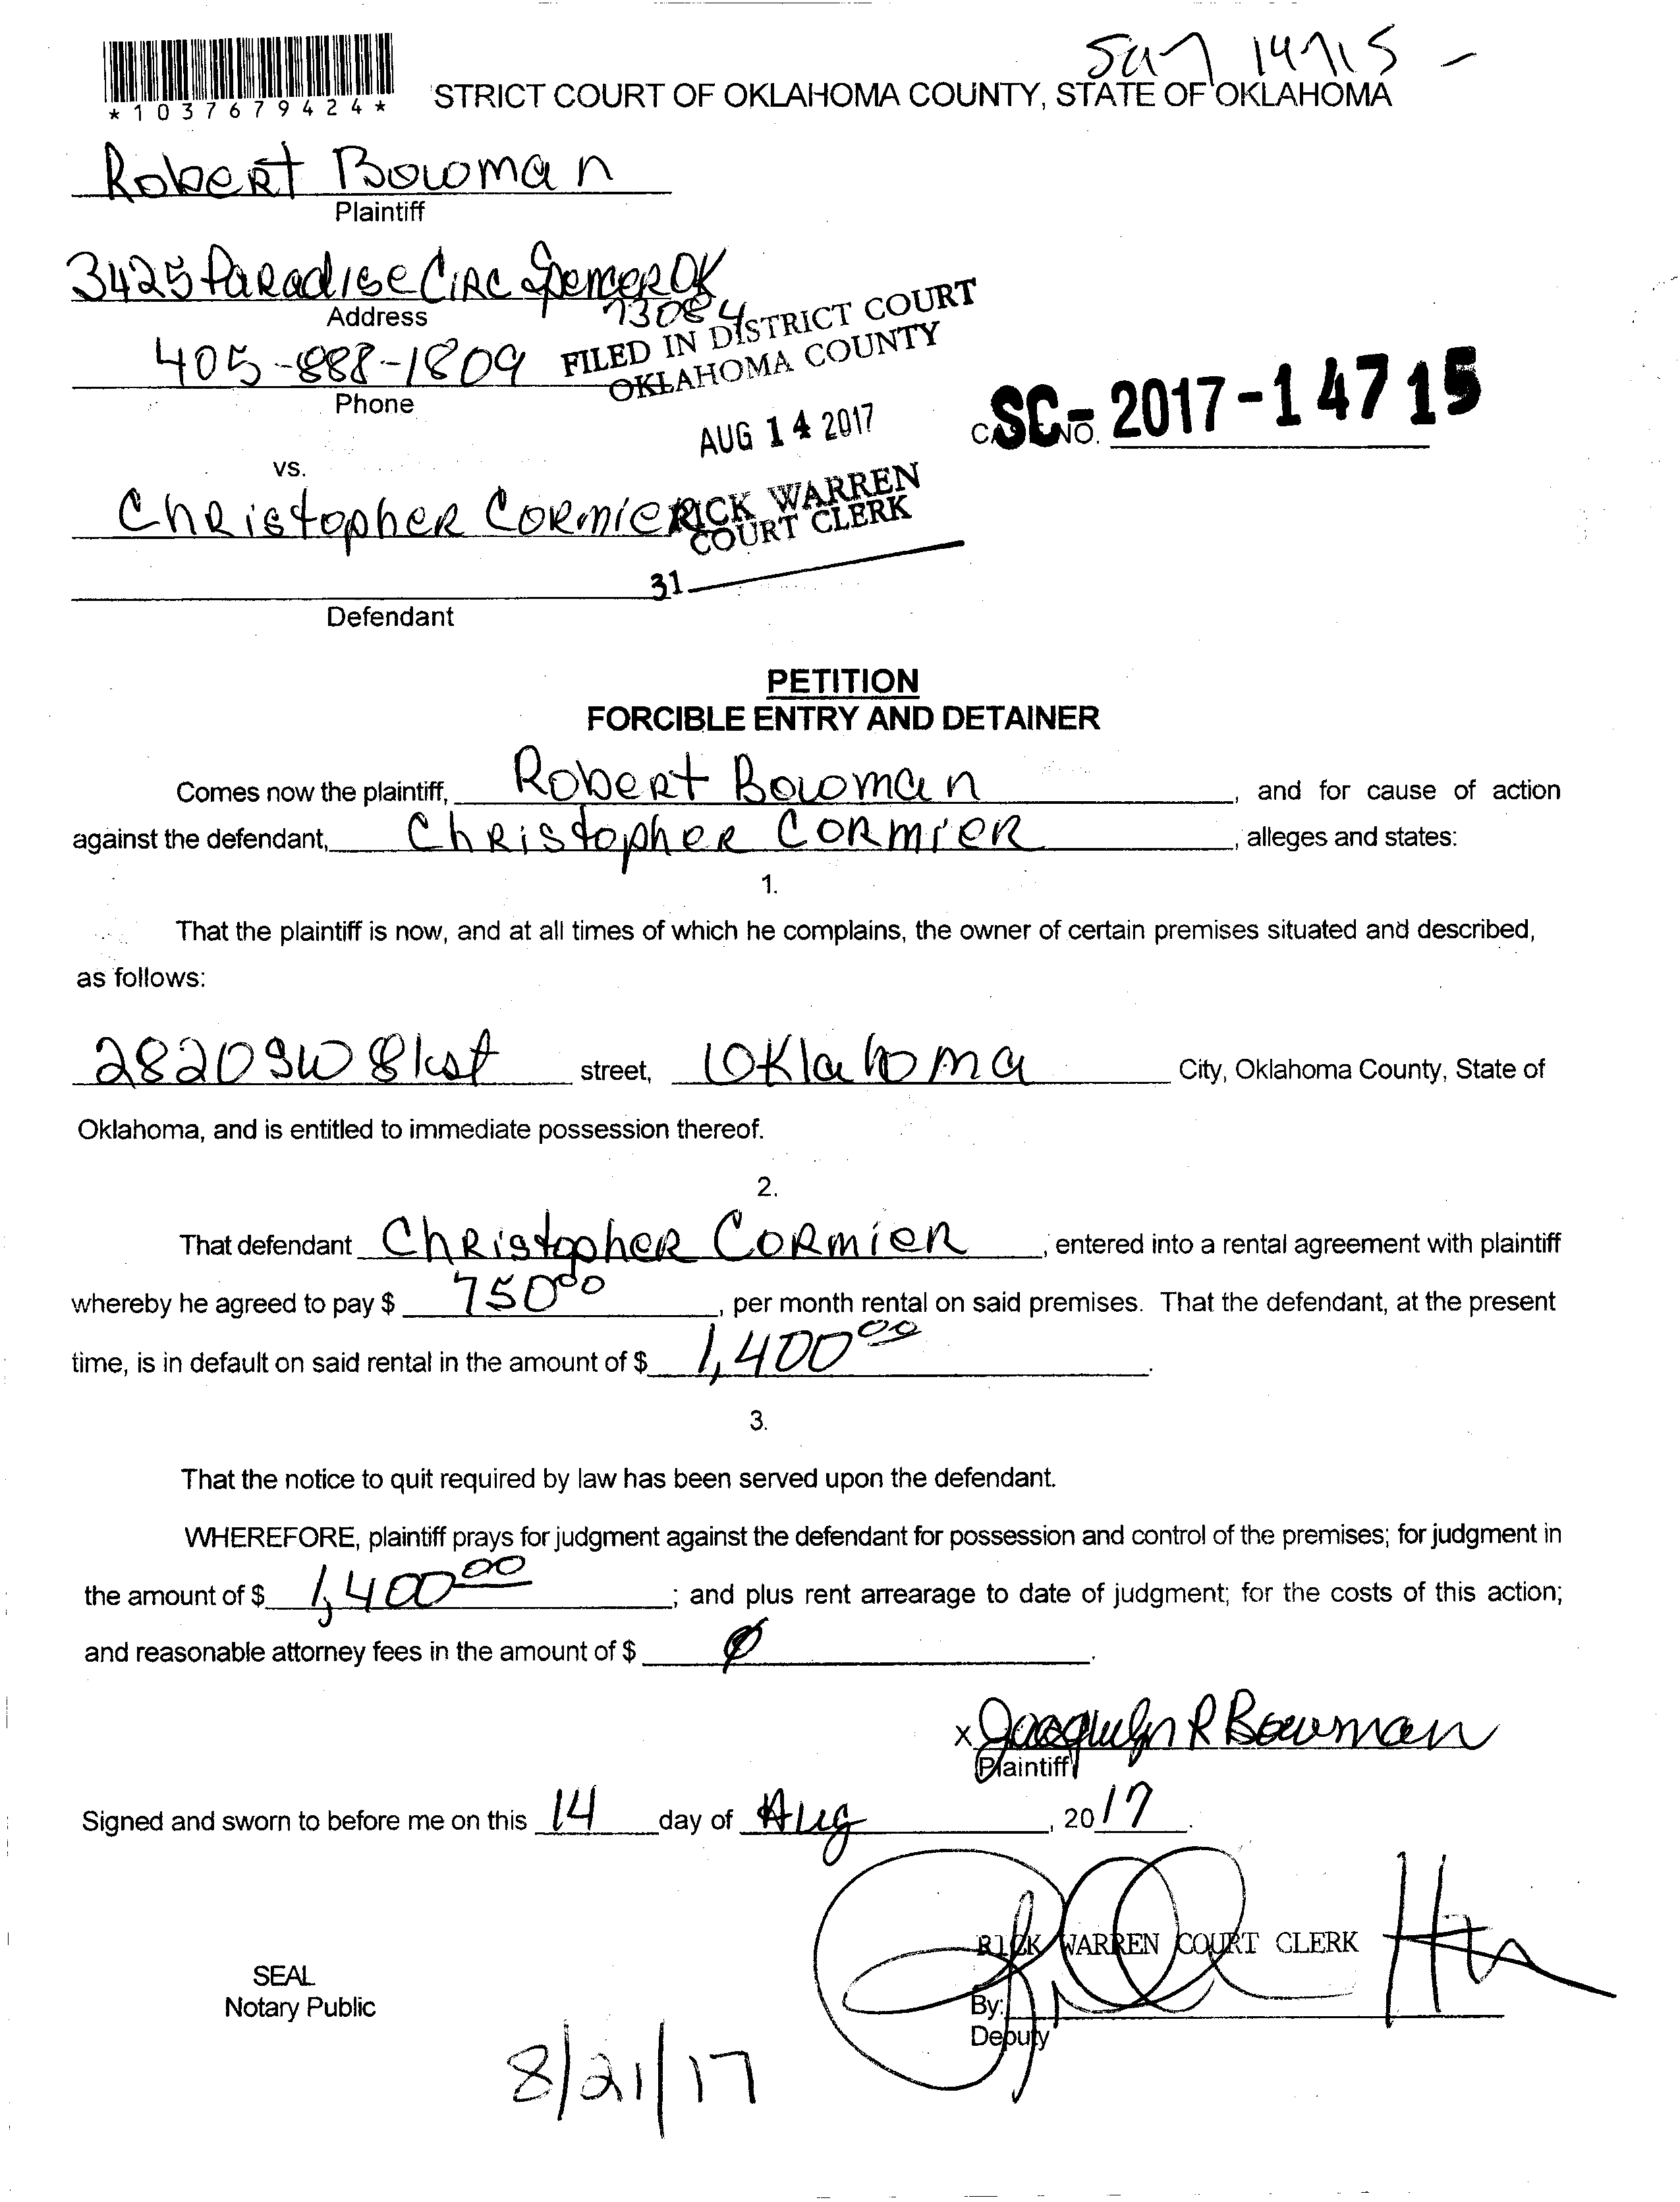 Sa 14715 -
*1037679424*
STRICT COURT OF OKLAHOMA COUNTY, STATE OF OKLAHOMA
Robert Bowman
Plaintiff
3425 Paradise Circ Spencer OK
73084
Address
405-888-1809
Phone
FILED IN DISTRICT COURT
OKLAHOMA COUNTY
AUG 14 2017
SC-2017-14715
NO.
vs.
Christopher Cormier
RICK WARREN
COURT CLERK
31
Defendant
PETITION
FORCIBLE ENTRY AND DETAINER
Comes now the plaintiff, Robert Bowman, and for cause of action
against the defendant, Christopher Cormier, alleges and states:
1.
That the plaintiff is now, and at all times of which he complains, the owner of certain premises situated and described,
as follows:
2820 SW 81st street, Oklahoma City, Oklahoma County, State of
Oklahoma, and is entitled to immediate possession thereof.
2.
That defendant Christopher Cormier, entered into a rental agreement with plaintiff
whereby he agreed to pay $ 750 00, per month rental on said premises. That the defendant, at the present
time, is in default on said rental in the amount of $ 1,400 00.
3.
That the notice to quit required by law has been served upon the defendant.
WHEREFORE, plaintiff prays for judgment against the defendant for possession and control of the premises; for judgment in
the amount of $ 1,400 00; and plus rent arrearage to date of judgment; for the costs of this action;
and reasonable attorney fees in the amount of $ Ø.
x Jacquelyn R Bowman
Plaintiff
Signed and sworn to before me on this 14 day of Aug, 2017.
RICK WARREN COURT CLERK
SEAL
Notary Public
By:
Deputy
8/21/17